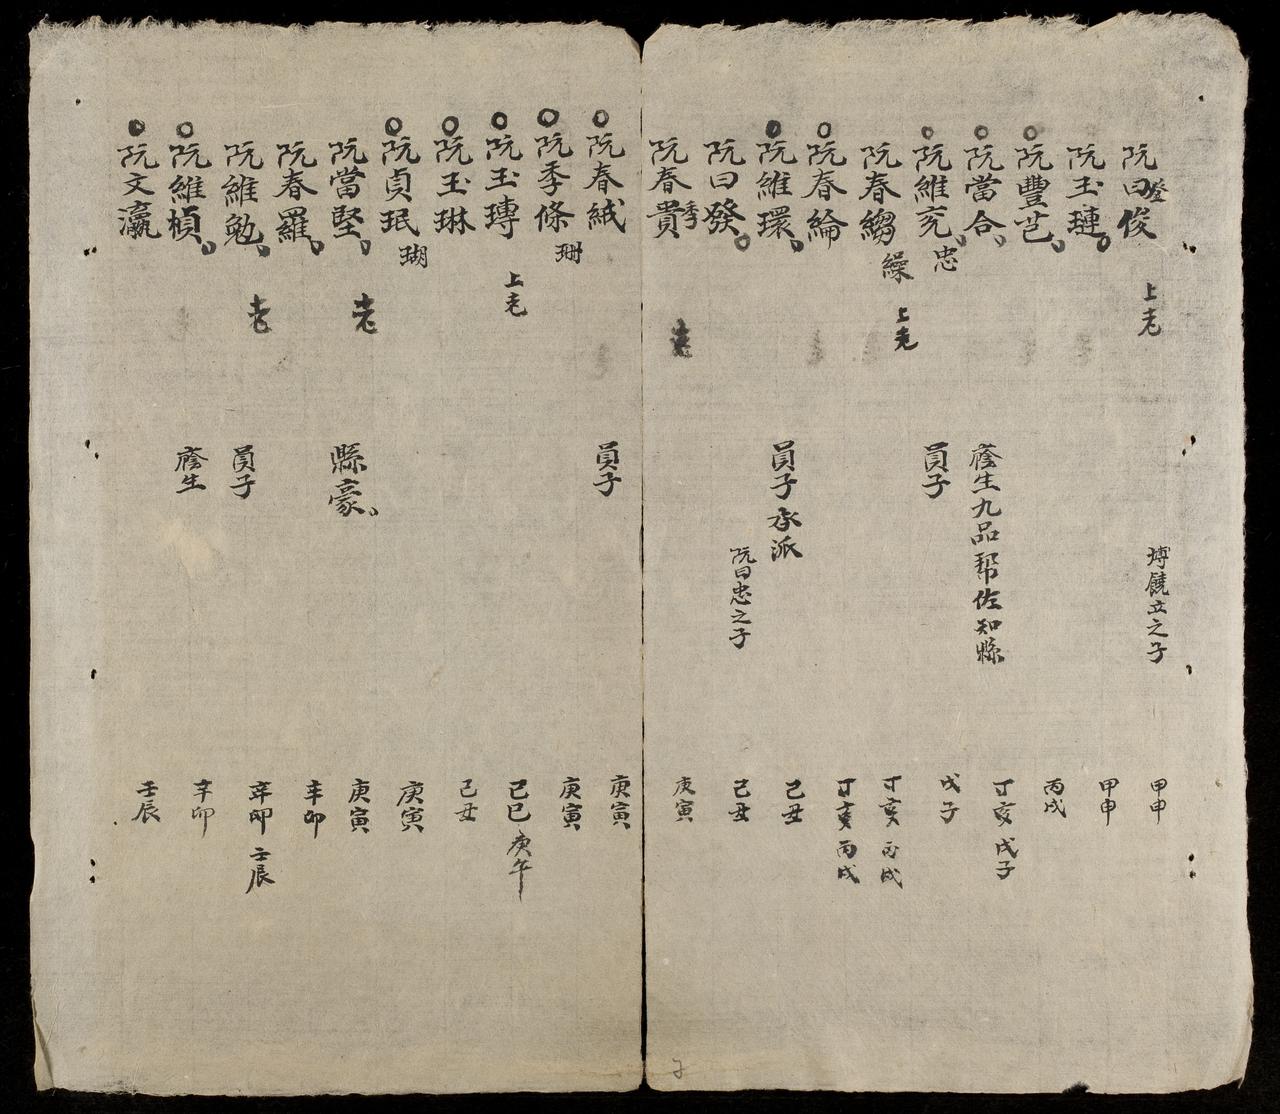 阮曰俊 上老 之子 甲申
阮玉璉 甲申
阮豐芑 丙戌
阮當合 蔭生九品幇佐知縣 丁亥 戊子
阮維充 忠 員子 戊子
阮春縐 繰 上老 丁亥 丙戌
阮春綸 丁亥 丙戌
阮維環 員子 承派 己丑
阮曰發 阮曰忠之子 己丑
阮春貴 季 庚寅
阮春絨 員子 庚寅
阮季條 珊 庚寅
阮玉瑼 上老 己巳 庚午
阮玉琳 己丑
阮貞珉 瑚 庚寅
阮當堅 老 縣豪 庚寅
阮春羅 辛卯
阮維勉 老 員子 辛卯 壬辰
阮維楨 蔭生 辛卯
阮文瀛 壬辰